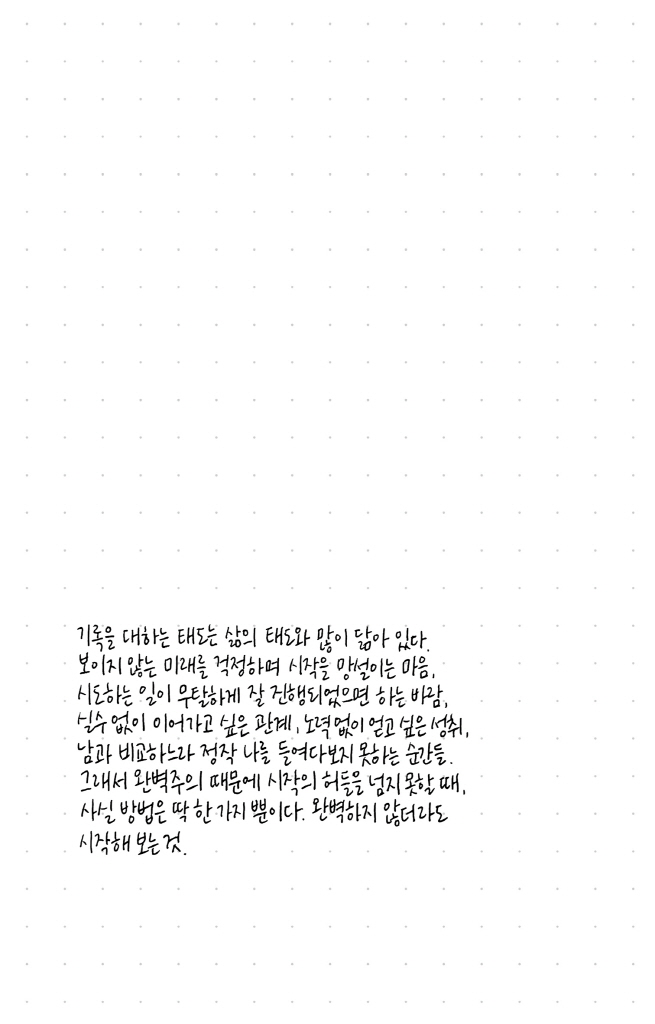 기록을 대하는 태도는 삶의 태도와 많이 닮아 있다.
보이지 않는 미래를 걱정하며 시작을 망설이는 마음,
시도하는 일이 무탈하게 잘 진행되었으면 하는 바람,
실수 없이 이어가고 싶은 관계, 노력 없이 얻고 싶은 성취,
남과 비교하느라 정작 나를 들여다보지 못하는 순간들.
그래서 완벽주의 때문에 시작의 허들을 넘지 못할 때,
사실 방법은 딱 한 가지 뿐이다. 완벽하지 않더라도
시작해 보는 것.